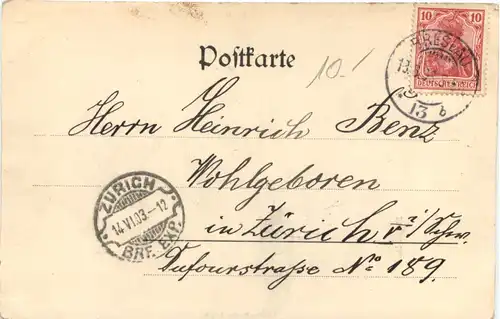 Postkarte
10.-
10 10
DEUTSCHES REICH
BRESLAU
13
13 b
Herrn Heinrich Benz
Wohlgeboren
in Zürich v i/Schw.
Dufourstraße No 189.
ZÜRICH
14.VI.03.-12
BRF. EXP.